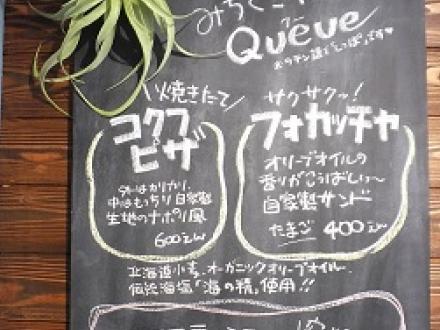 みちくさ
クー
Queue
ラテン語で"しっぽ"です♥
焼きたて
コクうま
ピザ
外はカリカリ、
中はもっちり自家製
生地のナポリ風
600えん
サクサクッ!
フォカッチャ
オリーブオイルの
香りがこうばしい〜
自家製サンド
たまご 400えん
北海道小麦、オーガニックオリーブオイル、
伝統海塩「海の精」使用!!